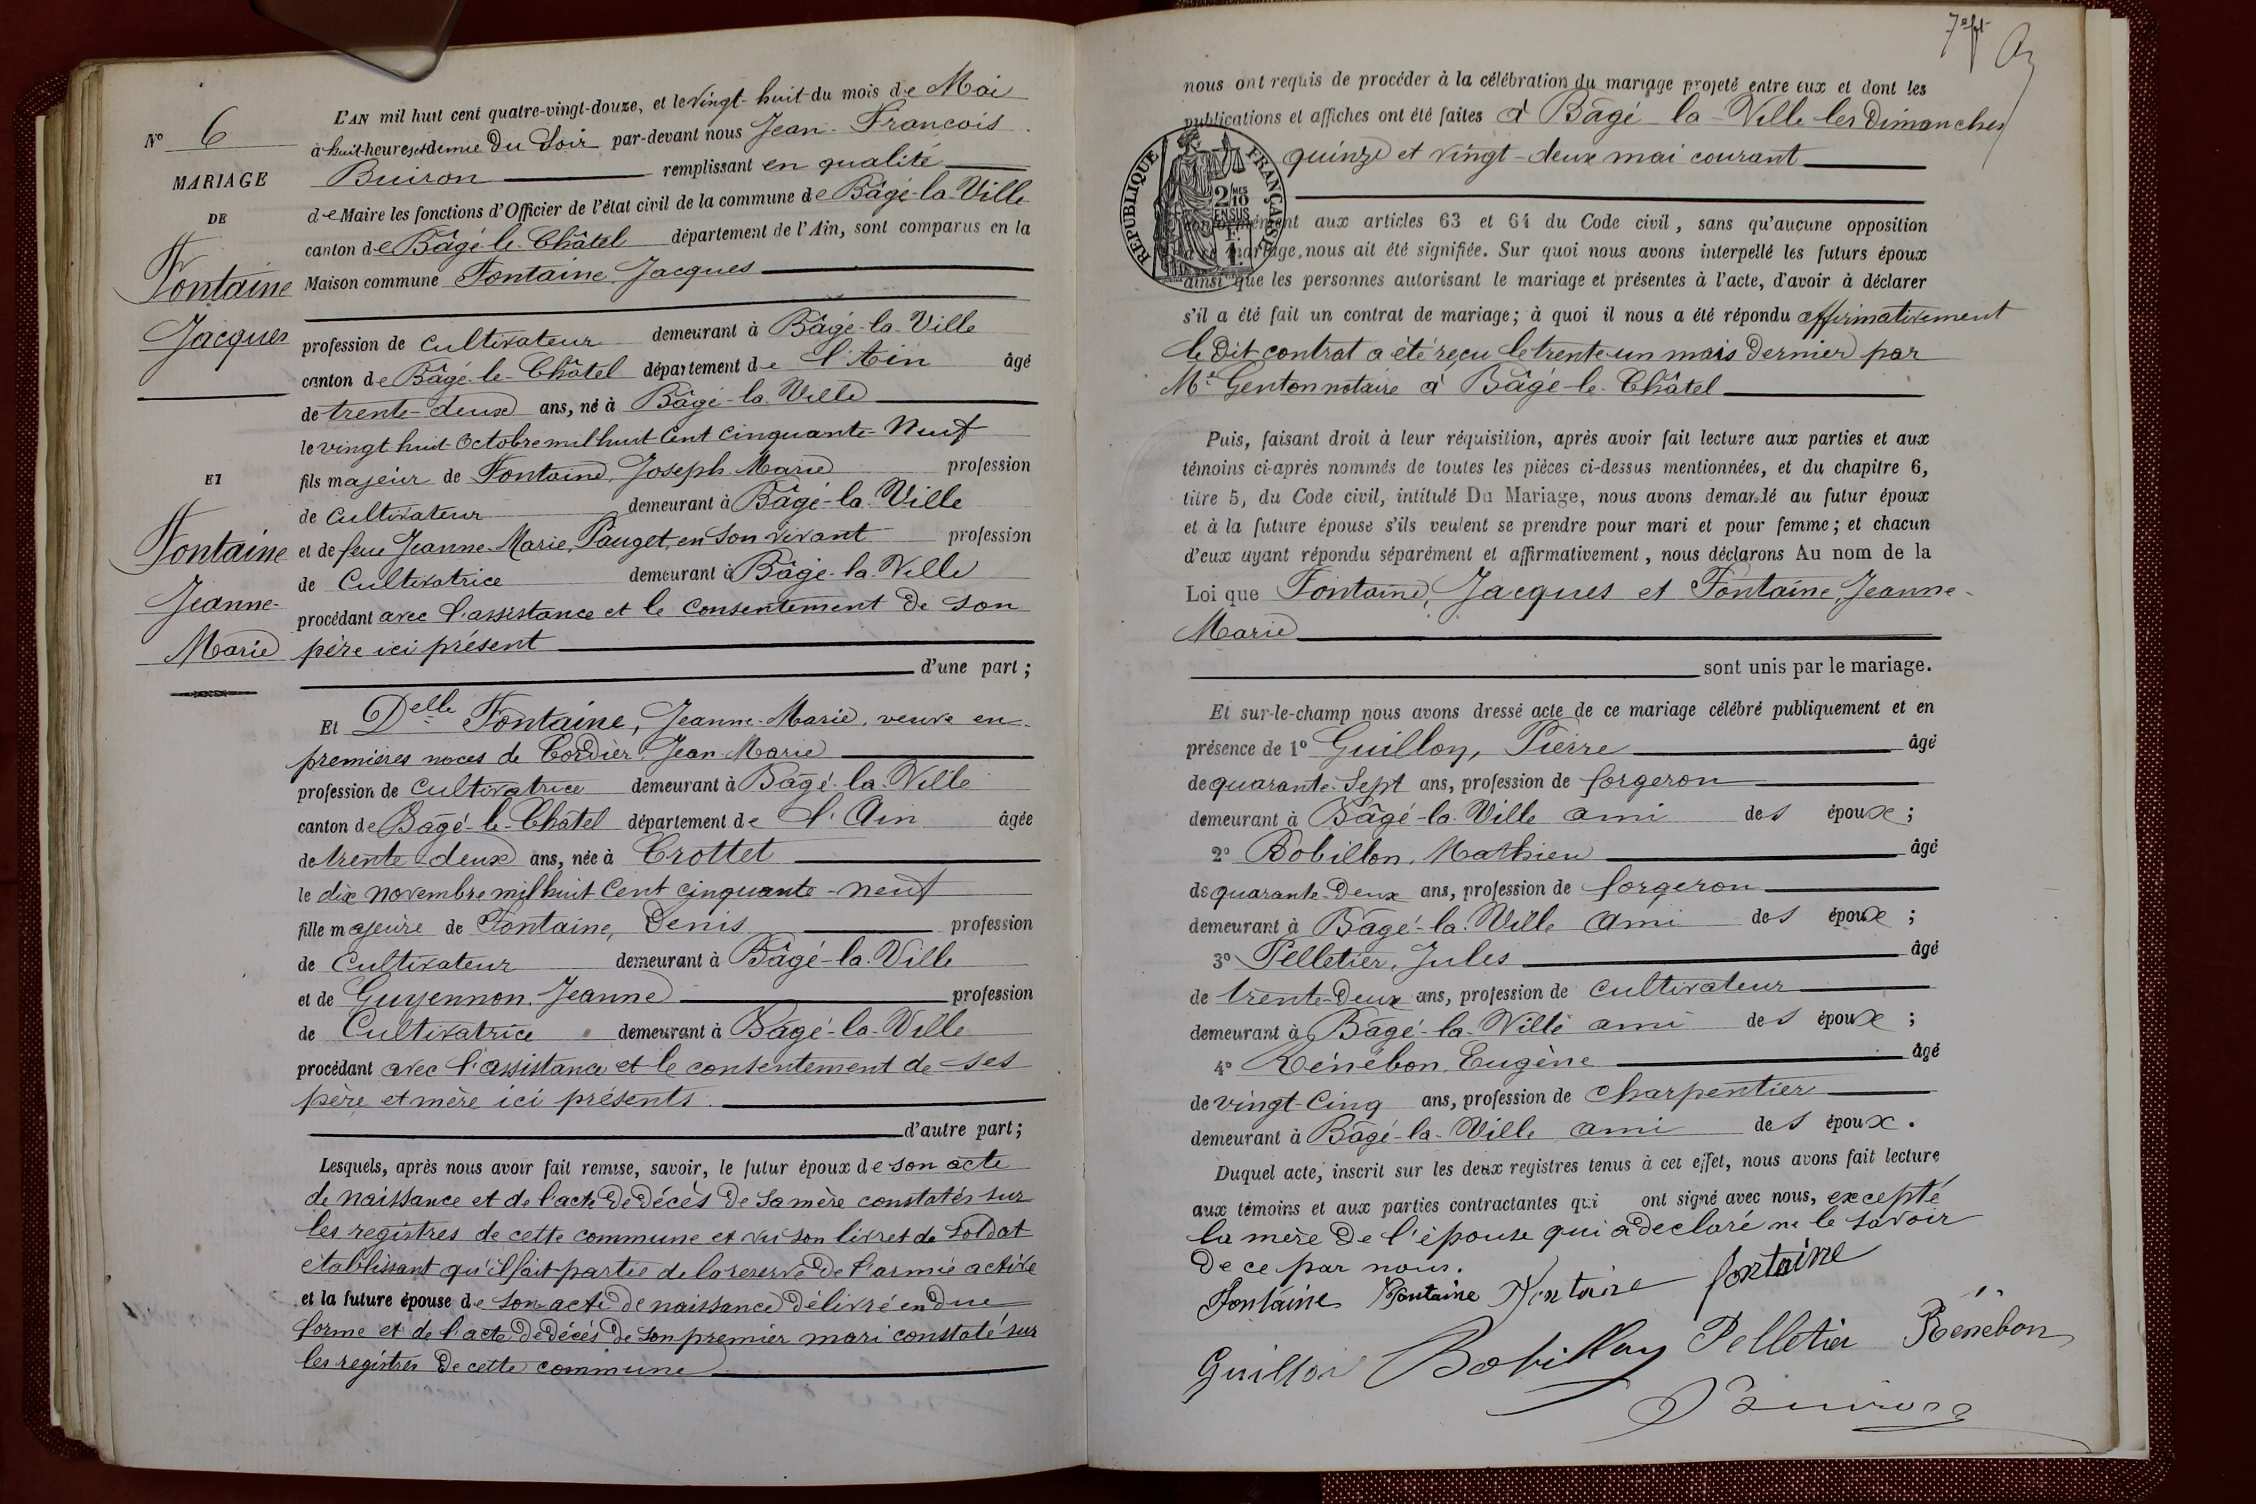 N° 6
MARIAGE
DE
Fontaine
Jacques
ET
Fontaine
Jeanne-
Marie
L'AN mil huit cent quatre-vingt-douze, et le vingt-huit du mois de Mai
à huit heures et demie du Soir par-devant nous Jean-François
Buiron remplissant en qualité
de Maire les fonctions d'Officier de l'état civil de la commune de Bâgé-la-Ville
canton de Bâgé-le-Châtel département de l'Ain, sont comparus en la
Maison commune Fontaine, Jacques
profession de cultivateur demeurant à Bâgé-la-Ville
canton de Bâgé-le-Châtel département de l'Ain âgé
de trente-deux ans, né à Bâgé-la-Ville
le vingt huit Octobre mil huit Cent Cinquante-Neuf
fils majeur de Fontaine, Joseph-Marie profession
de Cultivateur demeurant à Bâgé-la-Ville
et de feue Jeanne-Marie, Pauget, en son vivant profession
de Cultivatrice demeurant à Bâgé-la-Ville
procédant avec l'assistance et le consentement de son
père ici présent
d'une part ;
Et Delle Fontaine, Jeanne-Marie, veuve en
premières noces de Cordier, Jean-Marie
profession de cultivatrice demeurant à Bâgé-la-Ville
canton de Bâgé-le-Châtel département de l'Ain âgée
de trente-deux ans, née à Crottet
le dix novembre mil huit Cent Cinquante-neuf
fille majeure de Fontaine, Denis profession
de Cultivateur demeurant à Bâgé-la-Ville
et de Guyennon, Jeanne profession
de Cultivatrice demeurant à Bâgé-la-Ville
procédant avec l'assistance et le consentement de ses
père et mère ici présents
d'autre part ;
Lesquels, après nous avoir fait remise, savoir, le futur époux de son acte
de naissance et de l'acte de décès de sa mère constatés sur
les registres de cette commune et vu son livret de Soldat
établissant qu'il fait partie de la reserve de l'armée active
et la future épouse de son acte de naissance délivré en due
forme et de l'acte de décès de son premier mari constaté sur
les registres de cette commune
7e ft
nous ont requis de procéder à la célébration du mariage projeté entre eux et dont les
publications et affiches ont été faites à Bâgé-la-Ville les dimanches
quinze et vingt-deux mai courant
RÉPUBLIQUE FRANÇAISE
2/10
EN SUS
conformément aux articles 63 et 64 du Code civil, sans qu'aucune opposition
à ce mariage, nous ait été signifiée. Sur quoi nous avons interpellé les futurs époux
ainsi que les personnes autorisant le mariage et présentes à l'acte, d'avoir à déclarer
s'il a été fait un contrat de mariage; à quoi il nous a été répondu affirmativement
le dit contrat a été reçu le trente-un mars dernier par
Me Genton notaire à Bâgé-le-Châtel
Puis, faisant droit à leur réquisition, après avoir fait lecture aux parties et aux
témoins ci-après nommés de toutes les pièces ci-dessus mentionnées, et du chapitre 6,
titre 5, du Code civil, intitulé Du Mariage, nous avons demandé au futur époux
et à la future épouse s'ils veulent se prendre pour mari et pour femme ; et chacun
d'eux ayant répondu séparément et affirmativement, nous déclarons Au nom de la
Loi que Fontaine, Jacques et Fontaine, Jeanne-
Marie
sont unis par le mariage.
Et sur-le-champ nous avons dressé acte de ce mariage célébré publiquement et en
présence de 1° Guillon, Pierre âgé
de quarante-Sept ans, profession de forgeron
demeurant à Bâgé-la-Ville ami des époux ;
2° Bobillon, Mathieu âgé
de quarante-Deux ans, profession de forgeron
demeurant à Bâgé-la-Ville ami des époux ;
3° Pelletier, Jules âgé
de trente-Deux ans, profession de cultivateur
demeurant à Bâgé-la-Ville ami des époux ;
4° Rénébon, Eugène âgé
de vingt-Cinq ans, profession de charpentier
demeurant à Bâgé-la-Ville ami des époux.
Duquel acte, inscrit sur les deux registres tenus à cet effet, nous avons fait lecture
aux témoins et aux parties contractantes qui ont signé avec nous, excepté
la mère de l'épouse qui a declaré ne le savoir
de ce par nous.
Fontaine Fontaine Fontaine fontaine
Guillon Bobillon Pelletier Rénébon
Buiron